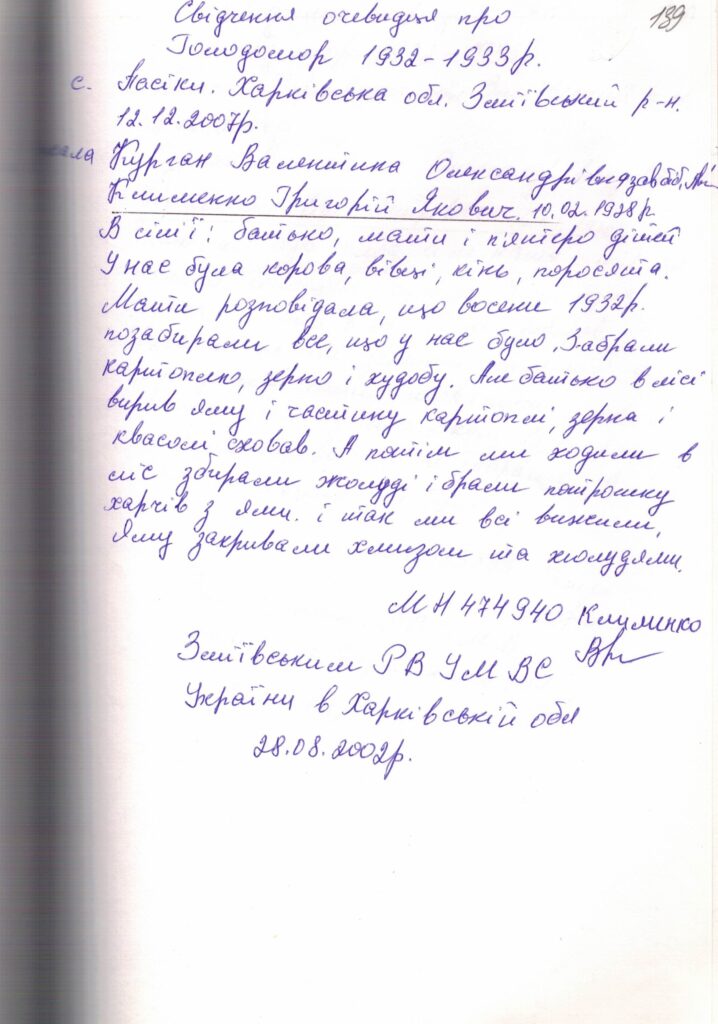 189
Свідчення очевидця про
Голодомор 1932-1933р.
с. Пасіки. Харківська обл. Зміївський р-н.
12.12.2007р.
Курган Валентина Олександрівна, зав біб,
Клименко Григорій Якович. 10.02.1928р.
В сім'ї: батько, мати і п'ятеро дітей
У нас була корова, вівці, кінь, поросята.
Мати розповідала, що восени 1932р.
позабирали все, що у нас було. Забрали
картоплю, зерно і худобу. Але батько в лісі
вирив яму і частину картоплі, зерна і
квасолі сховав. А потім ми ходили в
ліс збирали жолуді і брали потрошку
харчів з ями. і так ми всі вижили,
Яму закривали хмизом та жолудями.
МН 474940 Клименко
Зміївським РВ УМВС
України в Харківській обл
28.08.2002р.